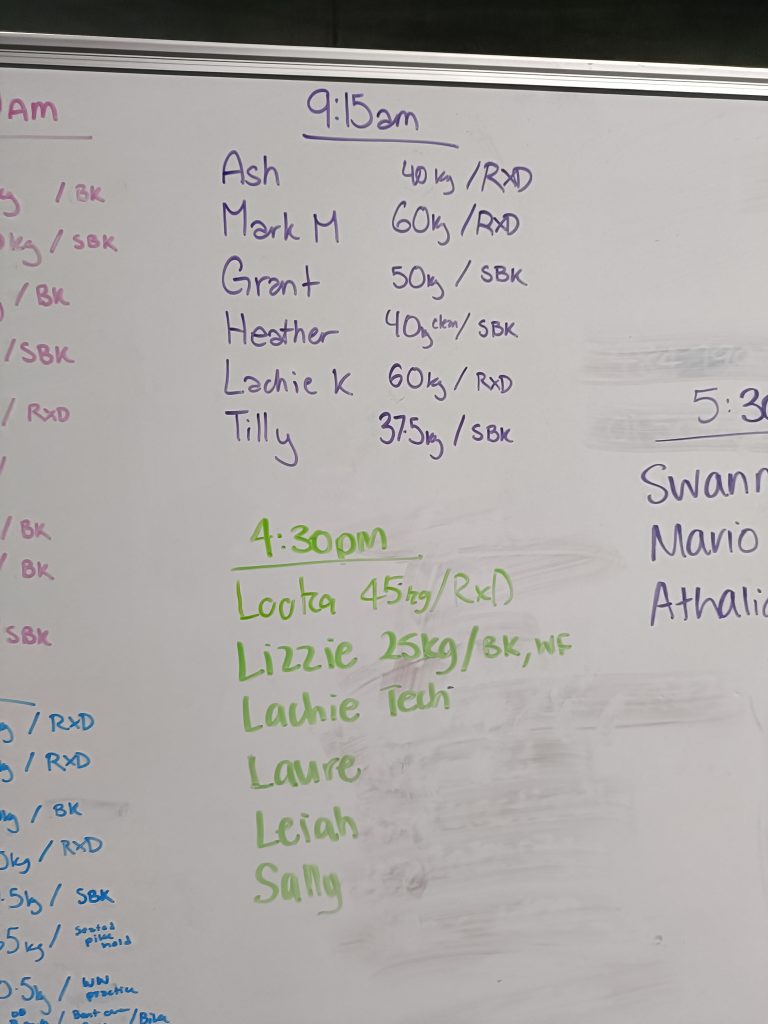 Am
/ BK
kg / SBK
/ BK
/ SBK
/ RXD
/
/ BK
/ BK
SBK
/ RXD
/ RXD
kg / BK
kg / RXD
.5kg / SBK
5kg / Seated pike hold
0.5kg / WW practice
/ Bent over / Bike
9:15am
Ash 40kg / RXD
Mark M 60kg / RXD
Grant 50kg / SBK
Heather 40kg clean / SBK
Lachie K 60kg / RXD
Tilly 37.5kg / SBK
4:30pm
Looka 45kg / RxD
Lizzie 25kg / BK, WF
Lachie Tech
Laure
Leiah
Sally
5:30
Swann
Mario
Athalia